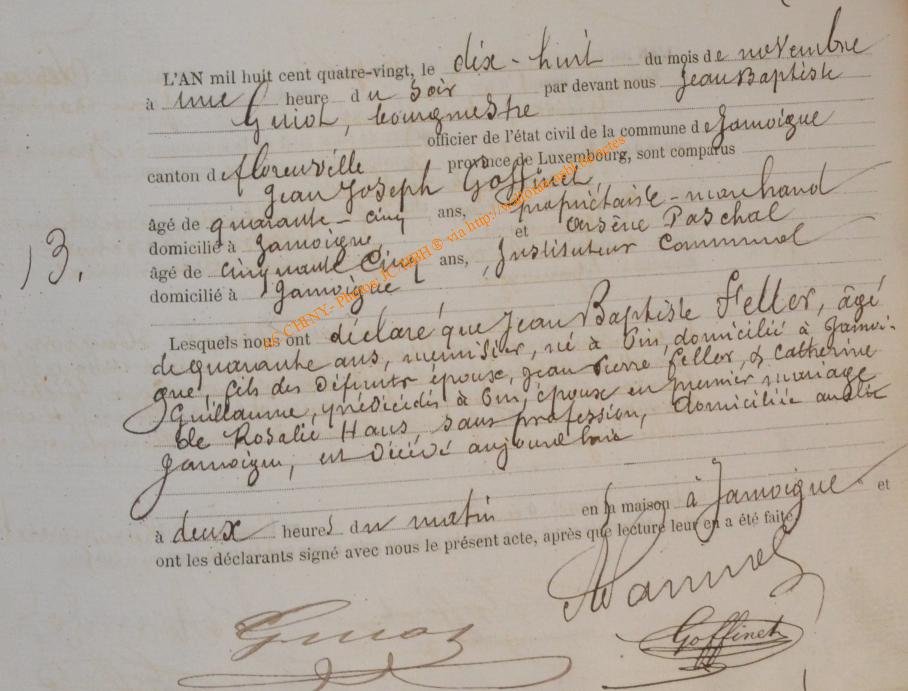 L'AN mil huit cent quatre-vingt, le dix-huit du mois de novembre
à une heure du soir par devant nous Jean Baptiste
Guiot, bourgmestre
officier de l'état civil de la commune de Jamoigne
canton de florenville province de Luxembourg, sont comparus
Jean Joseph Goffinet,
âgé de quarante-cinq ans, propriétaire-marchand
domicilié à Jamoigne, et Arsène Paschal
13.
âgé de cinquante cinq ans, Instituteur Communal
domicilié à Jamoigne
CHINY - Photos JC via http://
Lesquels nous ont déclaré que Jean Baptiste Feller, âgé
de quarante ans, menuisier, né à domicilié à Jamoi-
gne, fils des Défunts époux, Jean Pierre Feller, & Catherine
Guillaume, prédécédés à époux en premier mariage
de Rosalie Haus, sans profession, domiciliée audit
Jamoigne, est décédé aujourd'hui
à deux heures du matin en sa maison à Jamoigne et
ont les déclarants signé avec nous le présent acte, après que lecture leur en a été faite.
Guiot
Goffinet